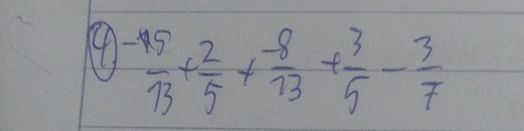 4. -15/13 + 2/5 + -8/13 + 3/5 - 3/7